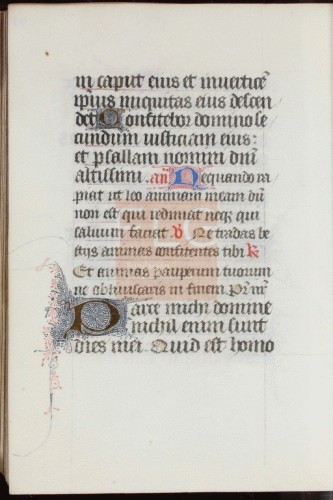 in caput eius et inuerticē
ipius iniquitas eius descen
det Confitebor domino se
cundum iusticiam eius:
et psallam nomini dn̄i
altissimi. an̄ Nequando ra
piat ut leo animam meam dū
non est qui redimat neq; qui
saluum faciat. V Ne tradas be
stijs animas confitentes tibi R
Et animas pauperum tuorum
ne obliuiscaris in finem. Pr̄ nr̄
Parce michi domine
nichil enim sunt
dies mei Quid est homo